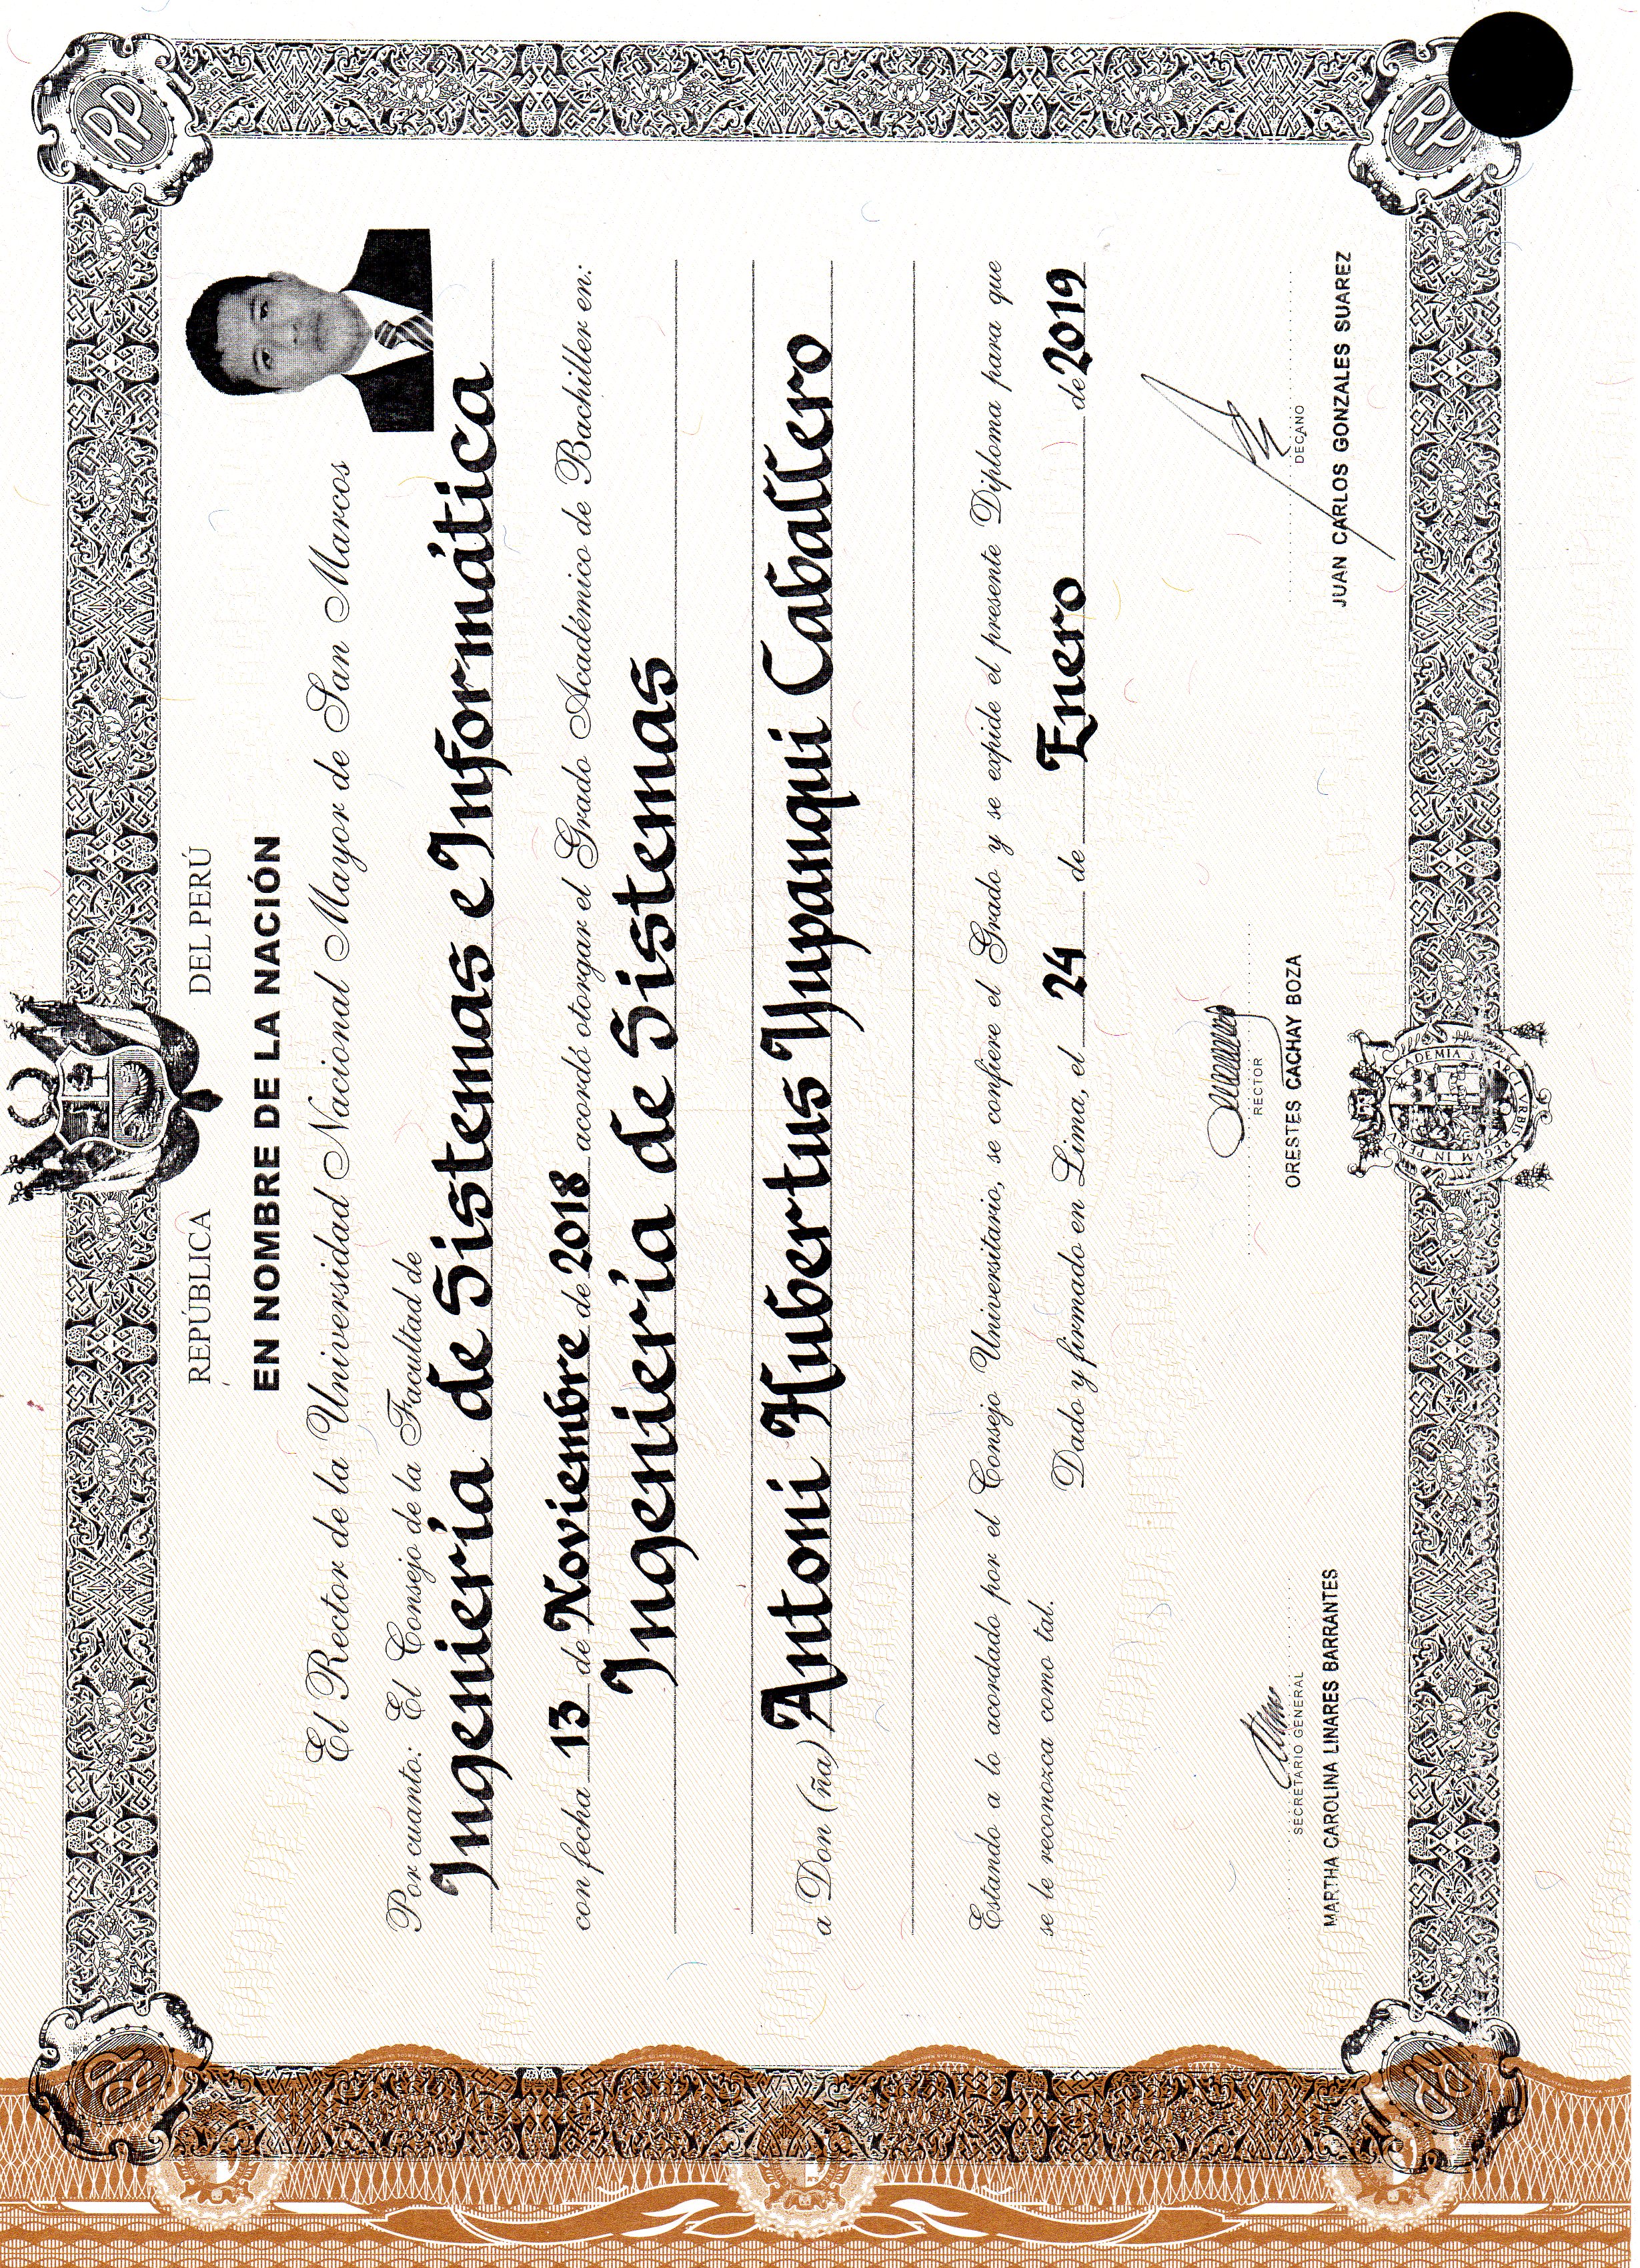 REPÚBLICA DEL PERÚ
EN NOMBRE DE LA NACIÓN
El Rector de la Universidad Nacional Mayor de San Marcos
Por cuanto: El Consejo de la Facultad de
Ingeniería de Sistemas e Informática
con fecha 13 de Noviembre de 2018 acordó otorgar el Grado Académico de Bachiller en:
Ingeniería de Sistemas
a Don (ña) Antoni Hubertus Yupanqui Caballero
Estando a lo acordado por el Consejo Universitario, se confiere el Grado y se expide el presente Diploma para que
se le reconozca como tal.
Dado y firmado en Lima, el 24 de Enero de 2019
RECTOR
ORESTES CACHAY BOZA
SECRETARIO GENERAL
MARTHA CAROLINA LINARES BARRANTES
DECANO
JUAN CARLOS GONZALES SUAREZ
RP
RP
RP
RP